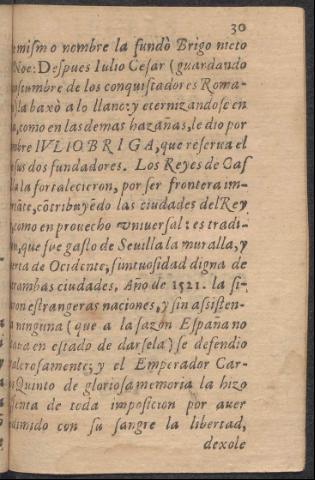 30
mismo nombre la fundò Brigo nieto
Noe: Despues Iulio Cesar (guardando
ostumbre de los conquistadores Roma-
la baxò a lo llano: y eternizandose en
, como en las demas hazañas, le dio por
mbre IVLIOBRIGA, que reserua el
sus dos fundadores. Los Reyes de Cas
la fortalecieron, por ser frontera im-
rtãte, cõtribuyẽdo las ciudades del Rey
, como en prouecho vniuersal: es tradi-
n, que fue gasto de Seuilla la muralla, y
erta de Ocidente, suntuosidad digna de
trambas ciudades. Año de 1521. la si-
ron estrangeras naciones, y sin assisten-
ninguna (que a la sazon España no
taua en estado de darsela) se defendio
alerosamente; y el Emperador Car-
Quinto de gloriosa memoria la hizo
senta de toda imposicion por auer
edimido con su sangre la libertad,
dexole